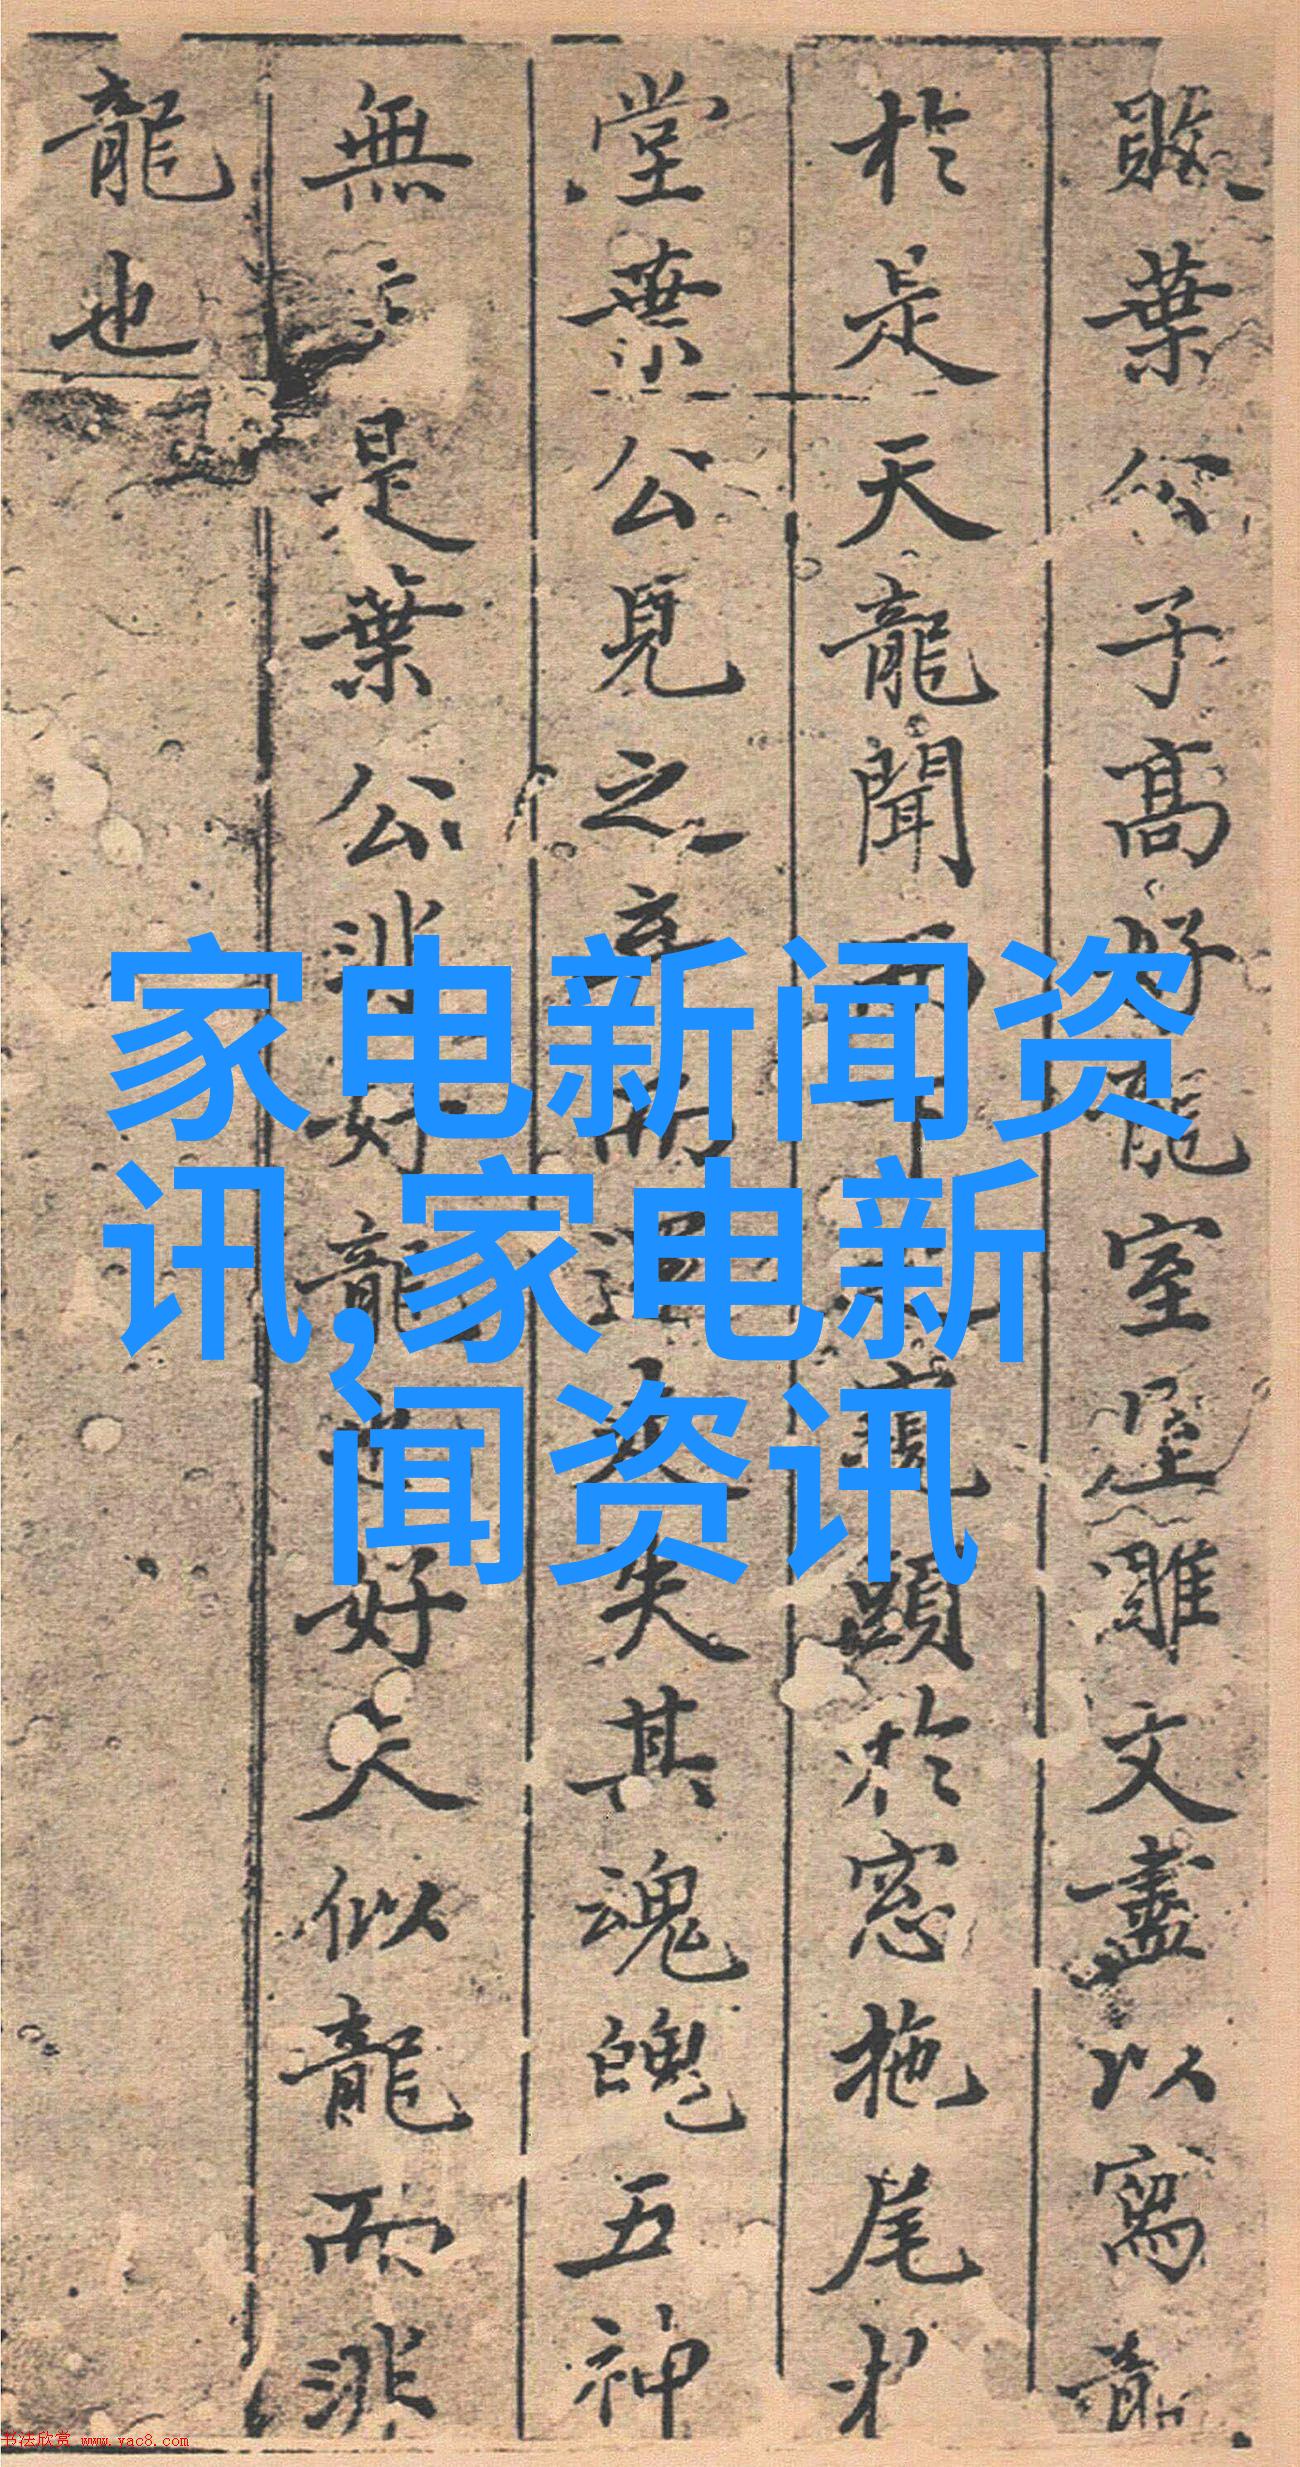 敗葉公子高好龍室屋雕文盡以寫龍
於是天龍聞而下之窺頭於窓拖尾於
堂葉公見之弃而還走失其魂魄五神
無主是葉公非好龍也好夫似龍而非
龍也
家电新闻资
讯,家电新
闻资讯
书法欣赏 www.yac8.com